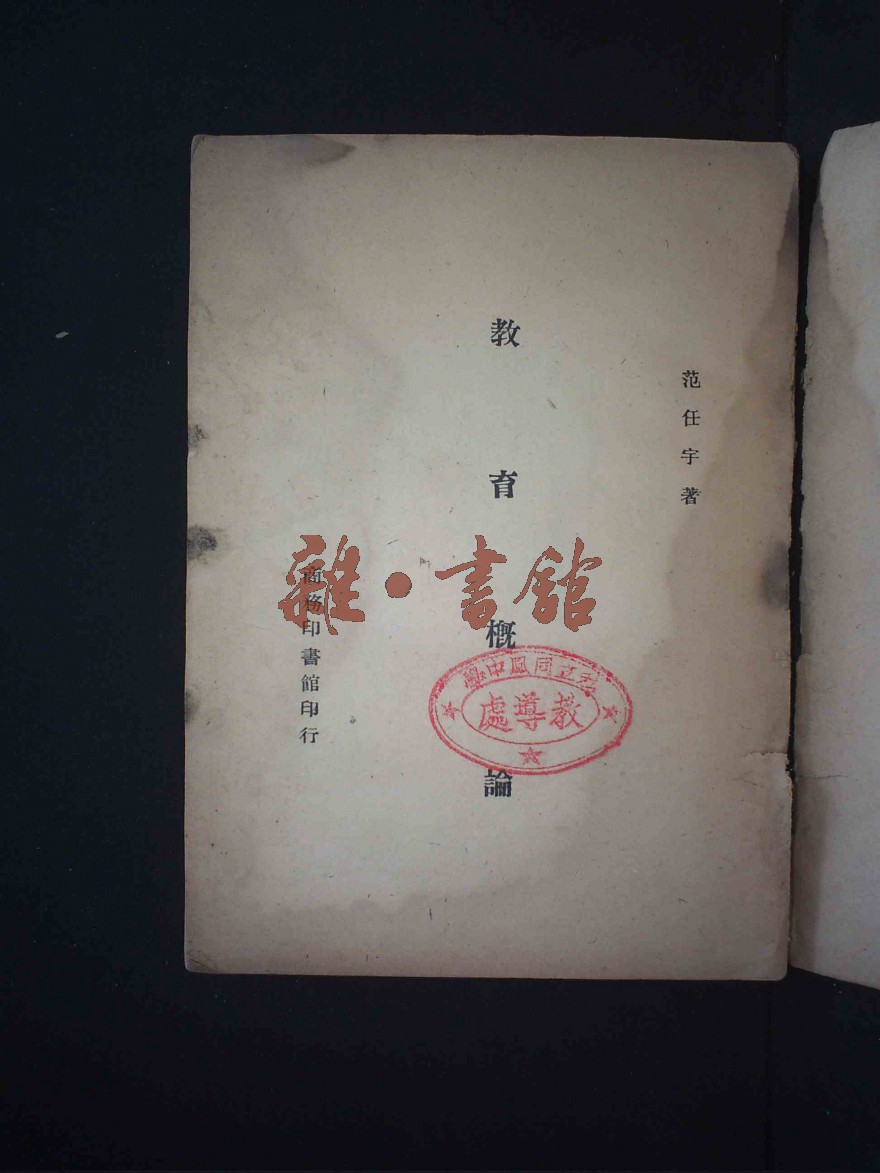 范任宇著
教育概論
商務印書館印行
雜·書館
私立同鳳中學
教導處